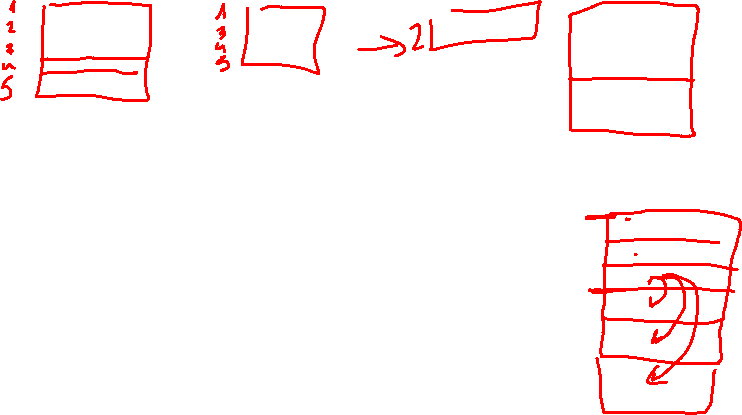 1
2
3
4
5
1
3
4
5
2